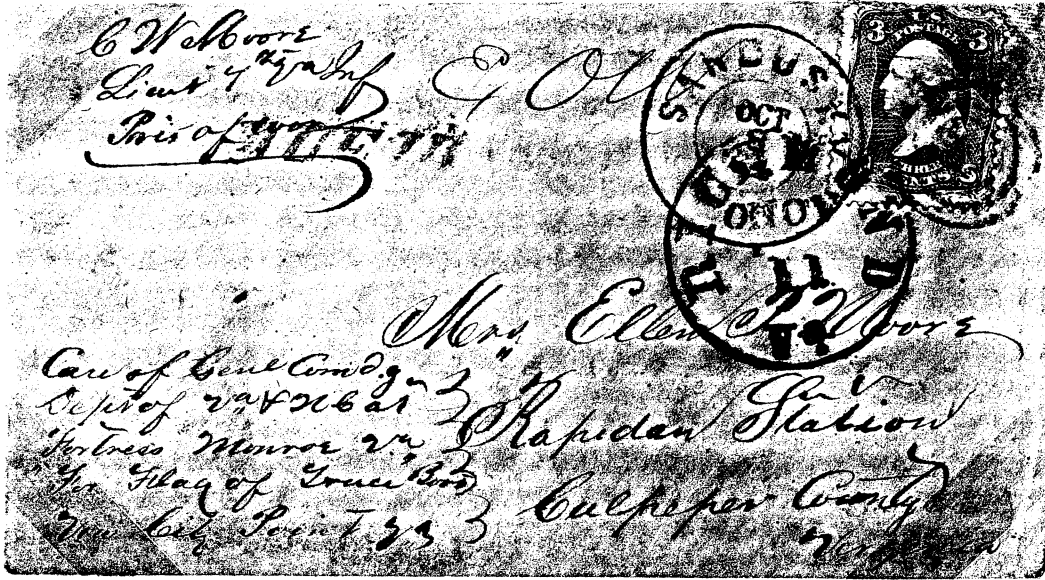 C W Moore
Lieut 7th Va Inf
Pris of war
SANDUSKY
OCT
OHIO
RICHMOND
11
VA
3 3
THREE CENTS
Mrs Ellen Moore
Rapidan Station
Culpeper County
Virginia
Care of Genl Comd.g
Dept of Va & N C at
Fortress Monroe Va
For Flag of Truce Boat
Via City Point Va